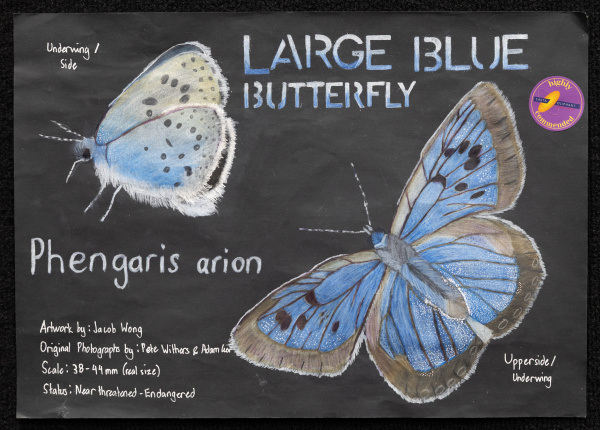 LARGE BLUE
BUTTERFLY
Underwing /
Side
highly
commended
Phengaris arion
Artwork by: Jacob Wong
Original Photographs by: Pete Withers & Adam
Scale: 38-44mm (real size)
Status: Near threatened - Endangered
Upperside/
Underwing